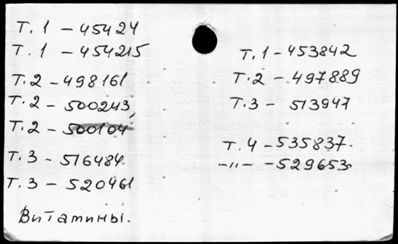 Т. 1 – 45424
Т. 1 – 454215
Т. 2 – 498161
Т. 2 – 500243,
Т. 2 – 500104
Т. 3 – 516484.
Т. 3 – 520461
Витамины.
Т. 1 – 453842
Т. 2 – 497889
Т. 3 – 513947
Т. 4 – 535837.
–"– – 529653.